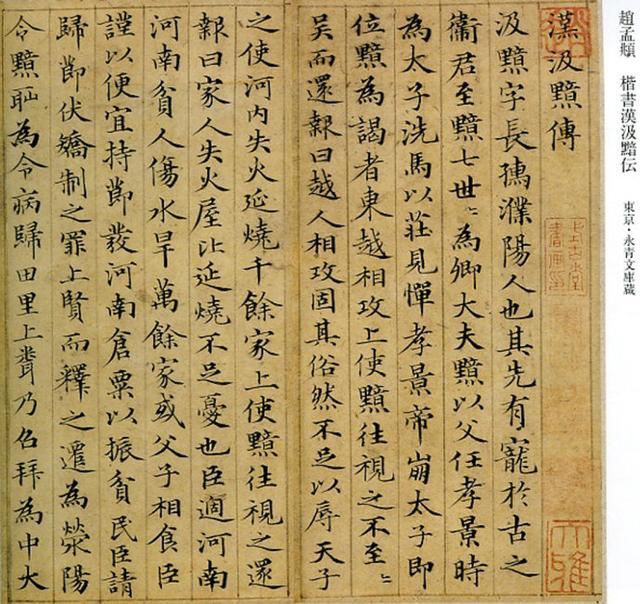 趙孟頫 楷書漢汲黯伝 東京・永青文庫蔵
大雅
漢汲黯傳
汲黯字長孺濮陽人也其先有寵於古之
衛君至黯七世〻為卿大夫黯以父任孝景時
為太子洗馬以莊見憚孝景帝崩太子即
位黯為謁者東越相攻上使黯往視之不至〻
吳而還報曰越人相攻固其俗然不足以辱天子
之使河内失火延燒千餘家上使黯往視之還
報曰家人失火屋比延燒不足憂也臣適河南
河南貧人傷水旱萬餘家或父子相食臣
謹以便宜持節發河南倉粟以振貧民臣請
歸節伏矯制之罪上賢而釋之遷為滎陽
令黯恥為令病歸田里上聞乃召拜為中大